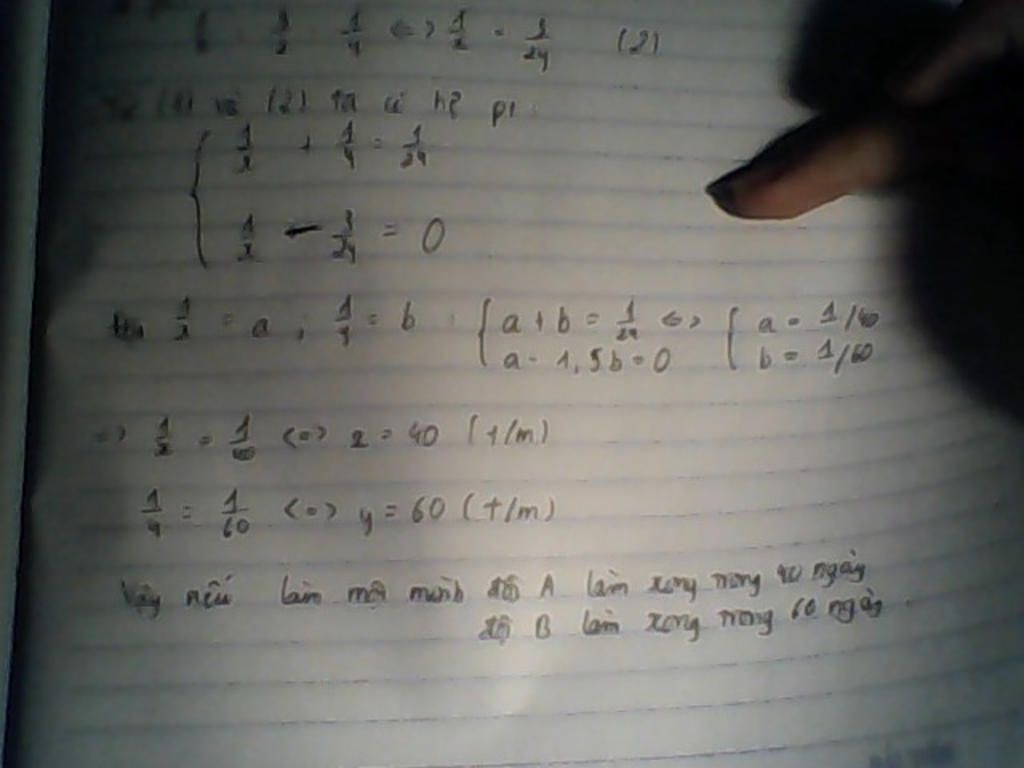 1/x = 3/2 · 1/y <=> 1/x = 3/2y (2)
Từ (1) và (2) ta có hệ pt:
{ 1/x + 1/y = 1/24
1/x - 3/2y = 0
1/x = a ; 1/y = b : { a + b = 1/24 <=> { a = 1/40
a - 1,5b = 0 b = 1/60
=> 1/x = 1/40 <=> x = 40 (t/m)
1/y = 1/60 <=> y = 60 (t/m)
Vậy nếu làm một mình đội A làm xong trong 40 ngày
đội B làm xong trong 60 ngày.